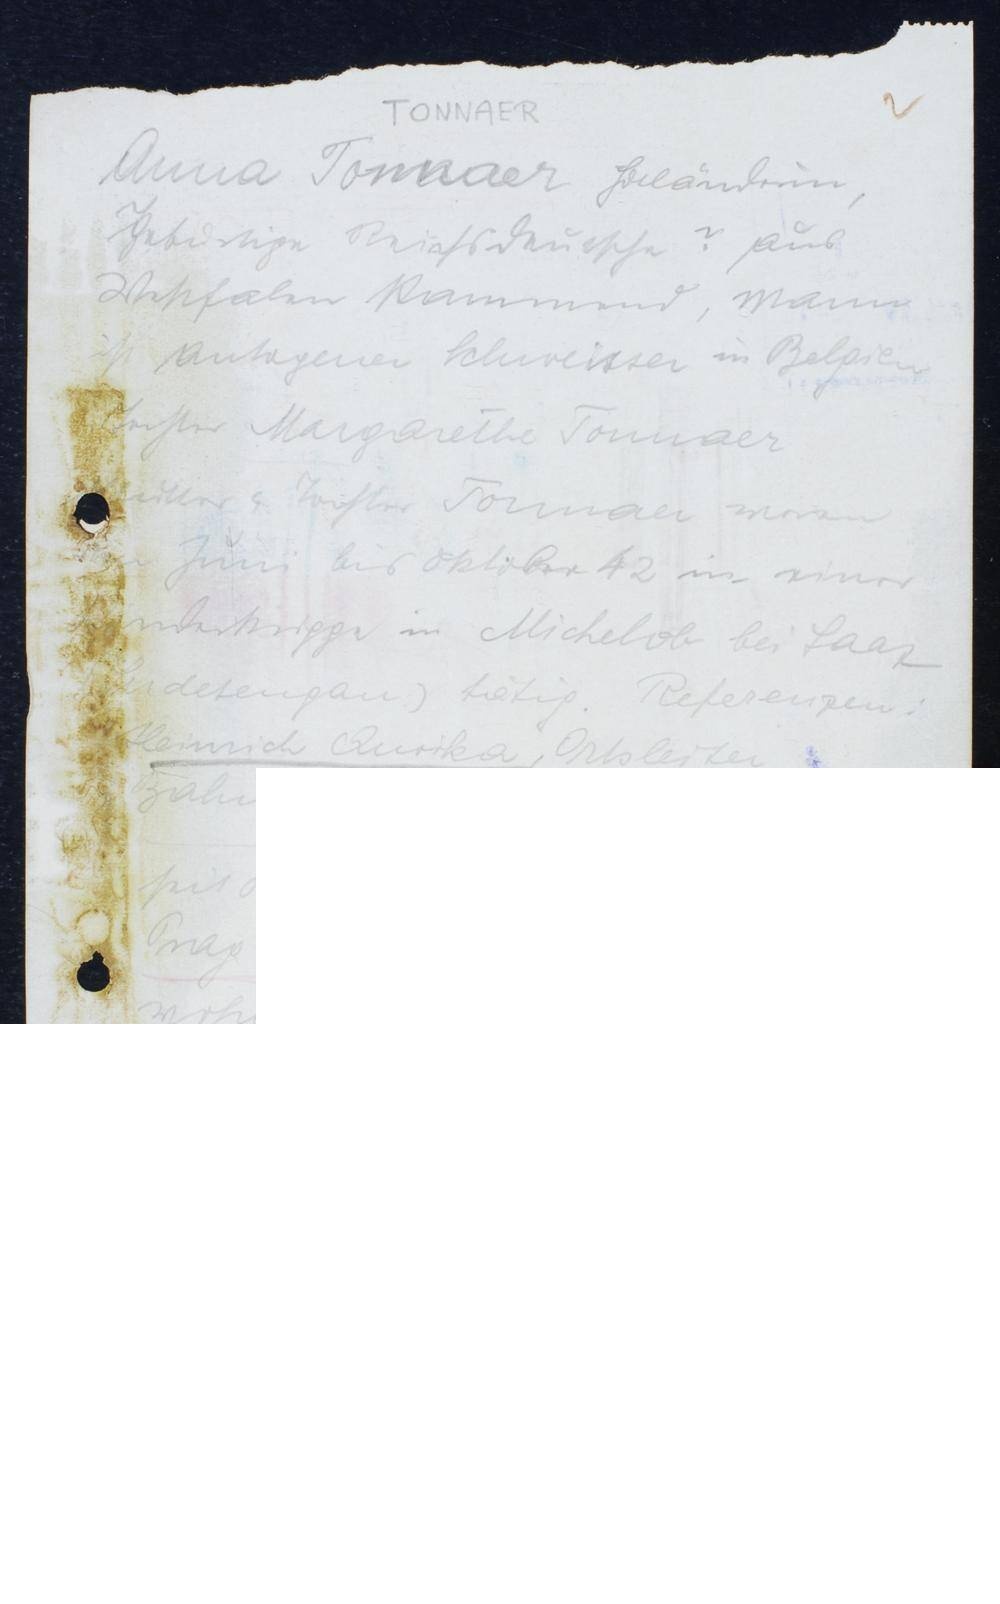 TONNAER
Anna Tonnaer Holländerin,
Gebürtige Reichsdeutsche ? aus
Westfalen kommend, Mann
ist autogener Schweisser in Belgien
Tochter Margarethe Tonnaer
Mutter & Tochter Tonnaer waren
Juni bis Oktober 42 in einer
in Michelob bei Saaz
tätig. Referenzen:
Heinrich Ortsleiter
seit
Prag